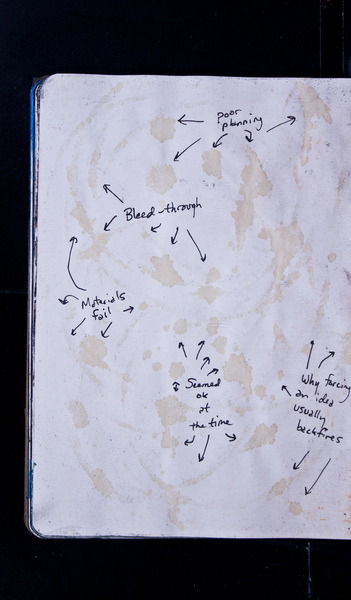 poor
planning
Bleed-through
Materials
fail
Seemed
ok
at
the time
Why forcing
an idea
usually
backfires